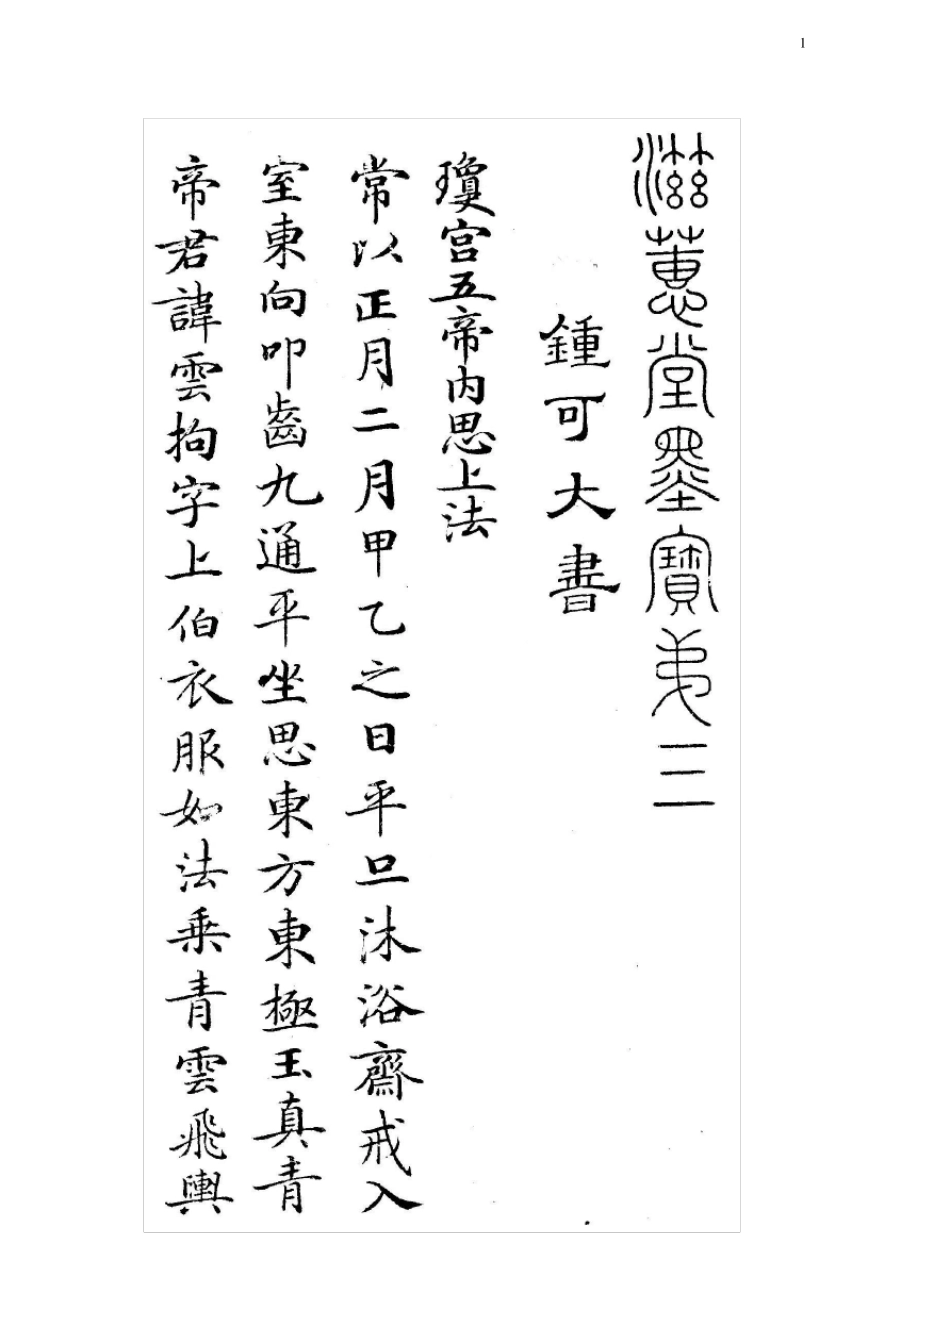 1
滋蕙堂墨寶弟三
鍾可大書
瓊宮五帝内思上法
常以正月二月甲乙之日平旦沐浴齋戒入
室東向叩齒九通平坐思東方東極玉真青
帝君諱雲拘字上伯衣服如法乗青雲飛輿